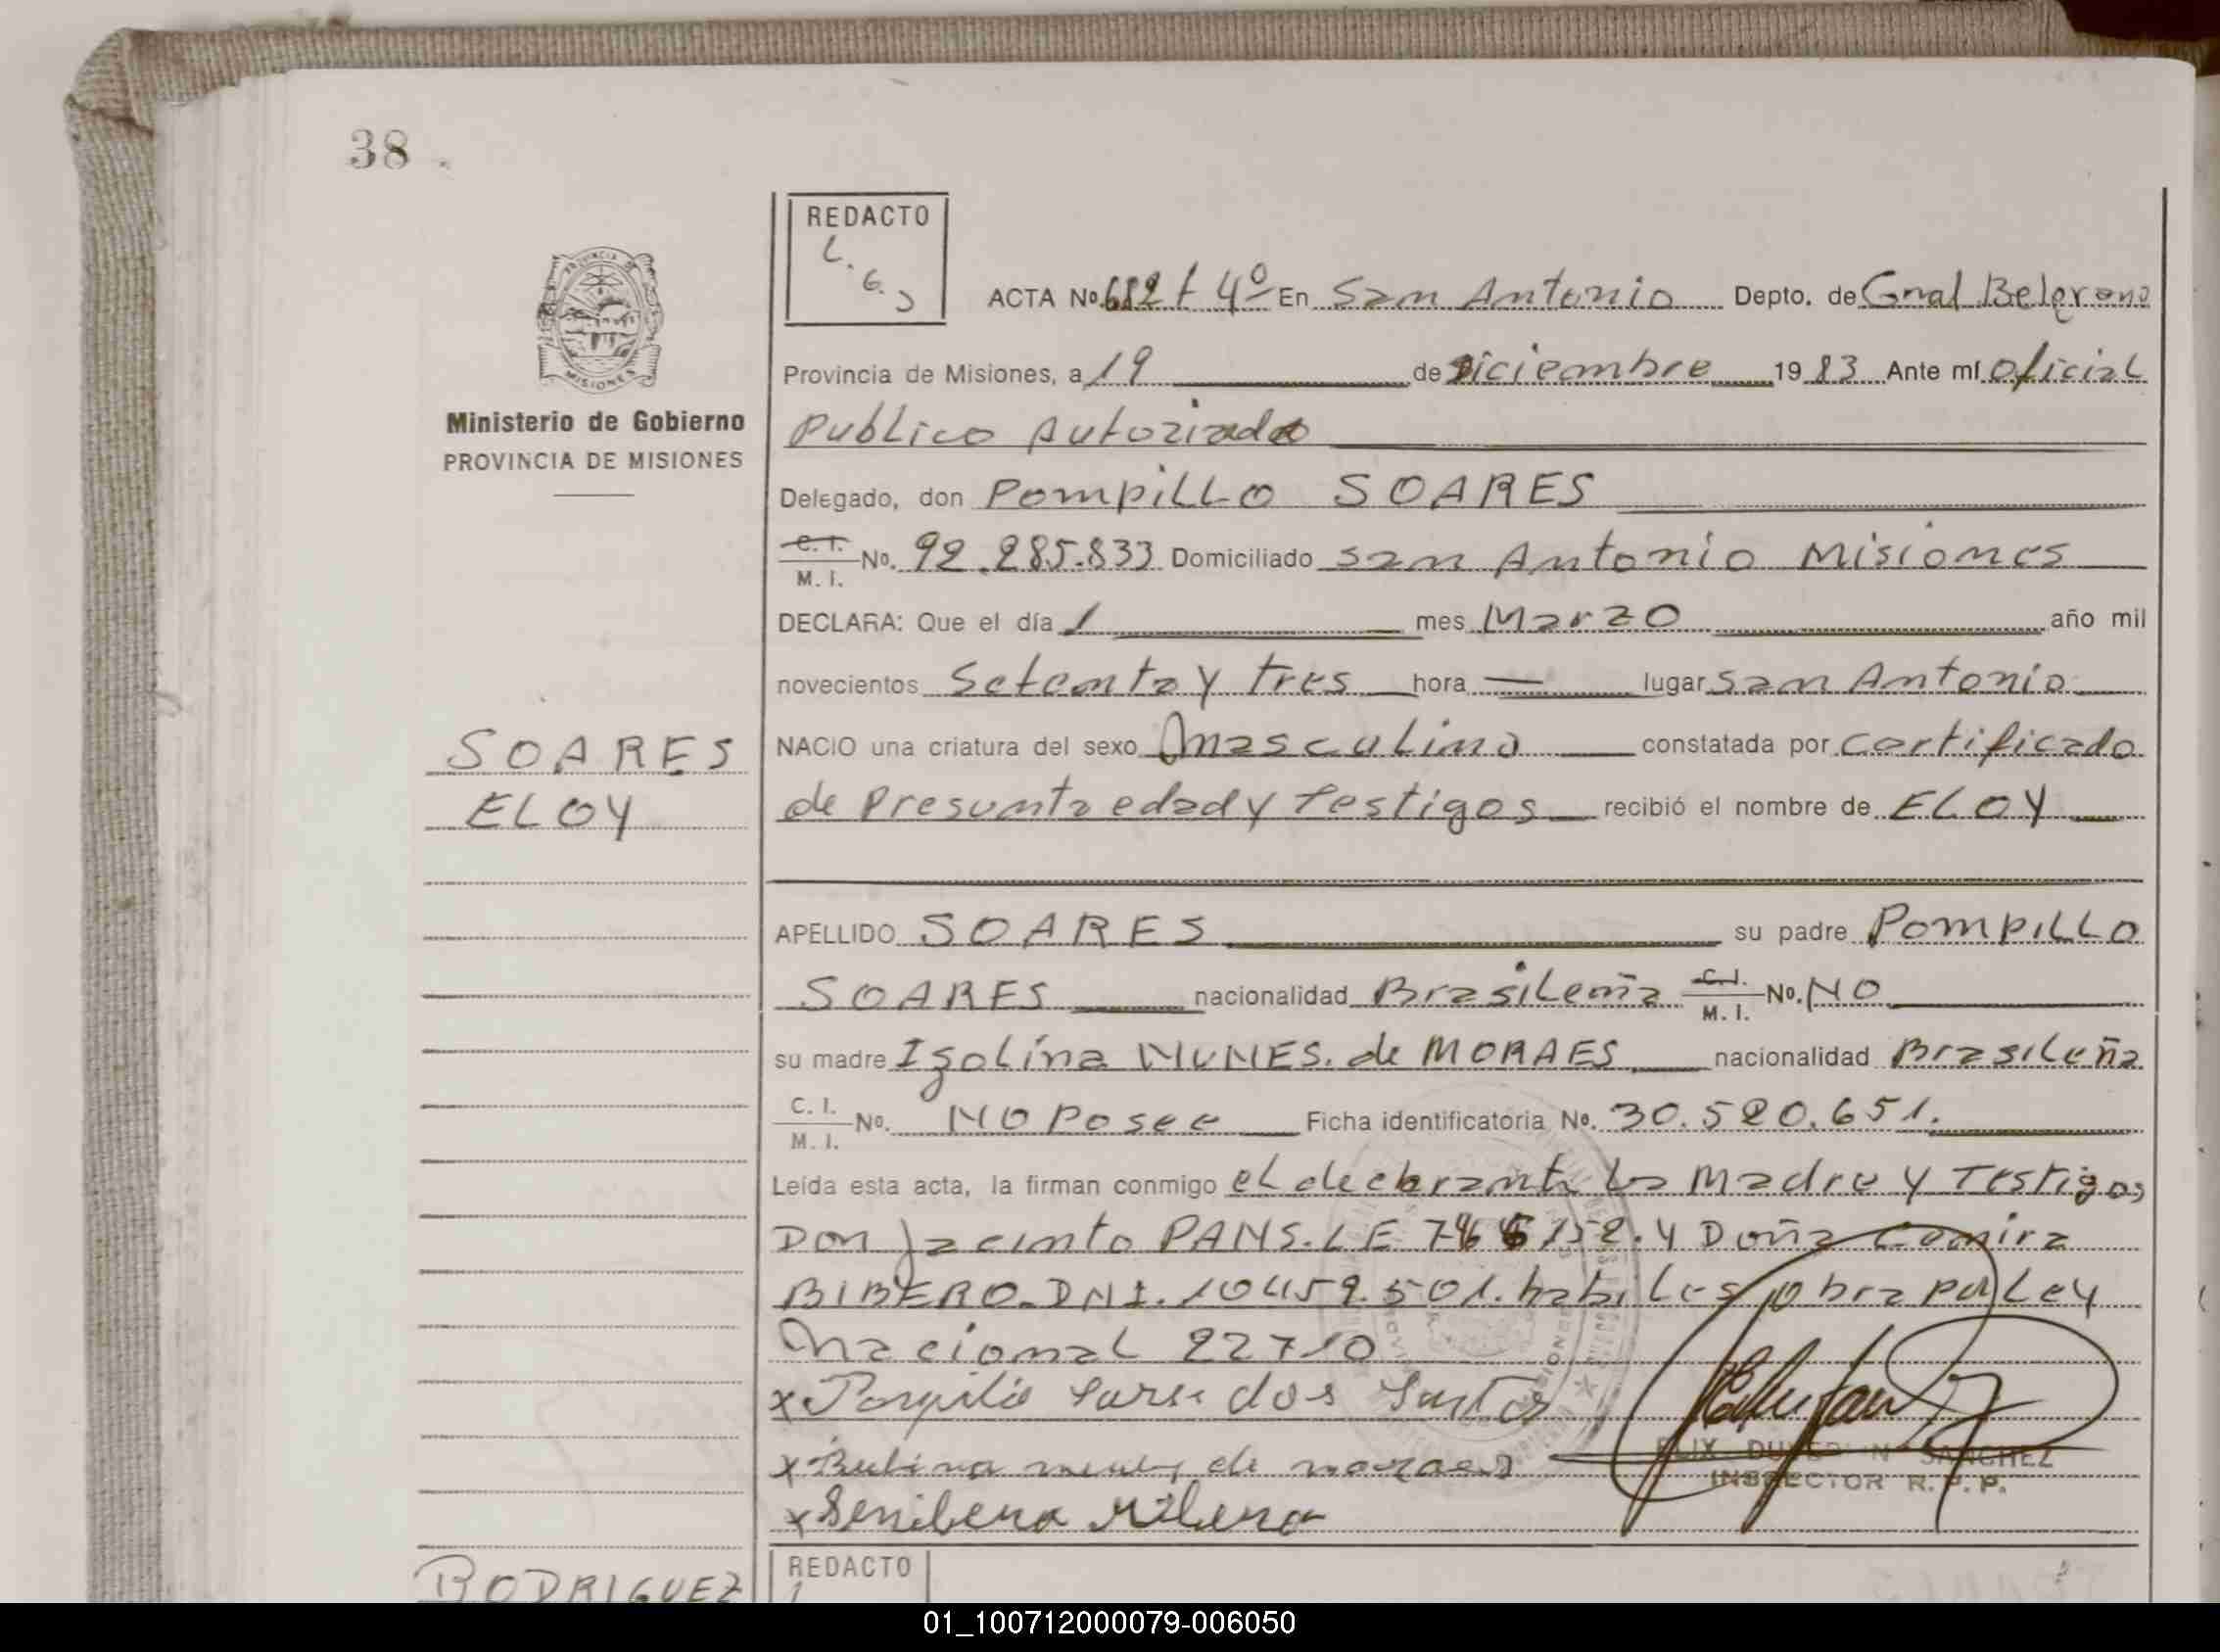 38
REDACTO
L.
G. J
ACTA No. 682 t 4º En San Antonio Depto. de Gnal Belgrano
Provincia de Misiones, a 19 de Diciembre 1983 Ante mí oficial
Publico Autorizado
Ministerio de Gobierno
PROVINCIA DE MISIONES
Delegado, don POMPILLO SOARES
C. I. M. I. No. 92.285.833 Domiciliado San Antonio Misiones
DECLARA: Que el día 1 mes Marzo año mil
novecientos Setenta y tres hora — lugar San Antonio
SOARES
ELOY
NACIO una criatura del sexo Masculino constatada por Certificado
de Presunta edad y testigos recibió el nombre de ELOY
APELLIDO SOARES su padre POMPILLO
SOARES nacionalidad Brasileña C. I. M. I. No. NO
su madre Izolina NUNES. de MORAES nacionalidad Brasileña
C. I. M. I. No. NO Posee Ficha identificatoria No. 30.520.651.
Leída esta acta, la firman conmigo el declarante La Madre y Testigos
Don Jacinto PANS. LE 7 152. y Doña
BIBERO. DNI. 10459.501. habiles obra por Ley
Nacional 22710
x dos Santos
x de moraes
x
SANCHEZ
INSPECTOR R. P. P.
RODRIGUEZ
REDACTO
01_100712000079-006050